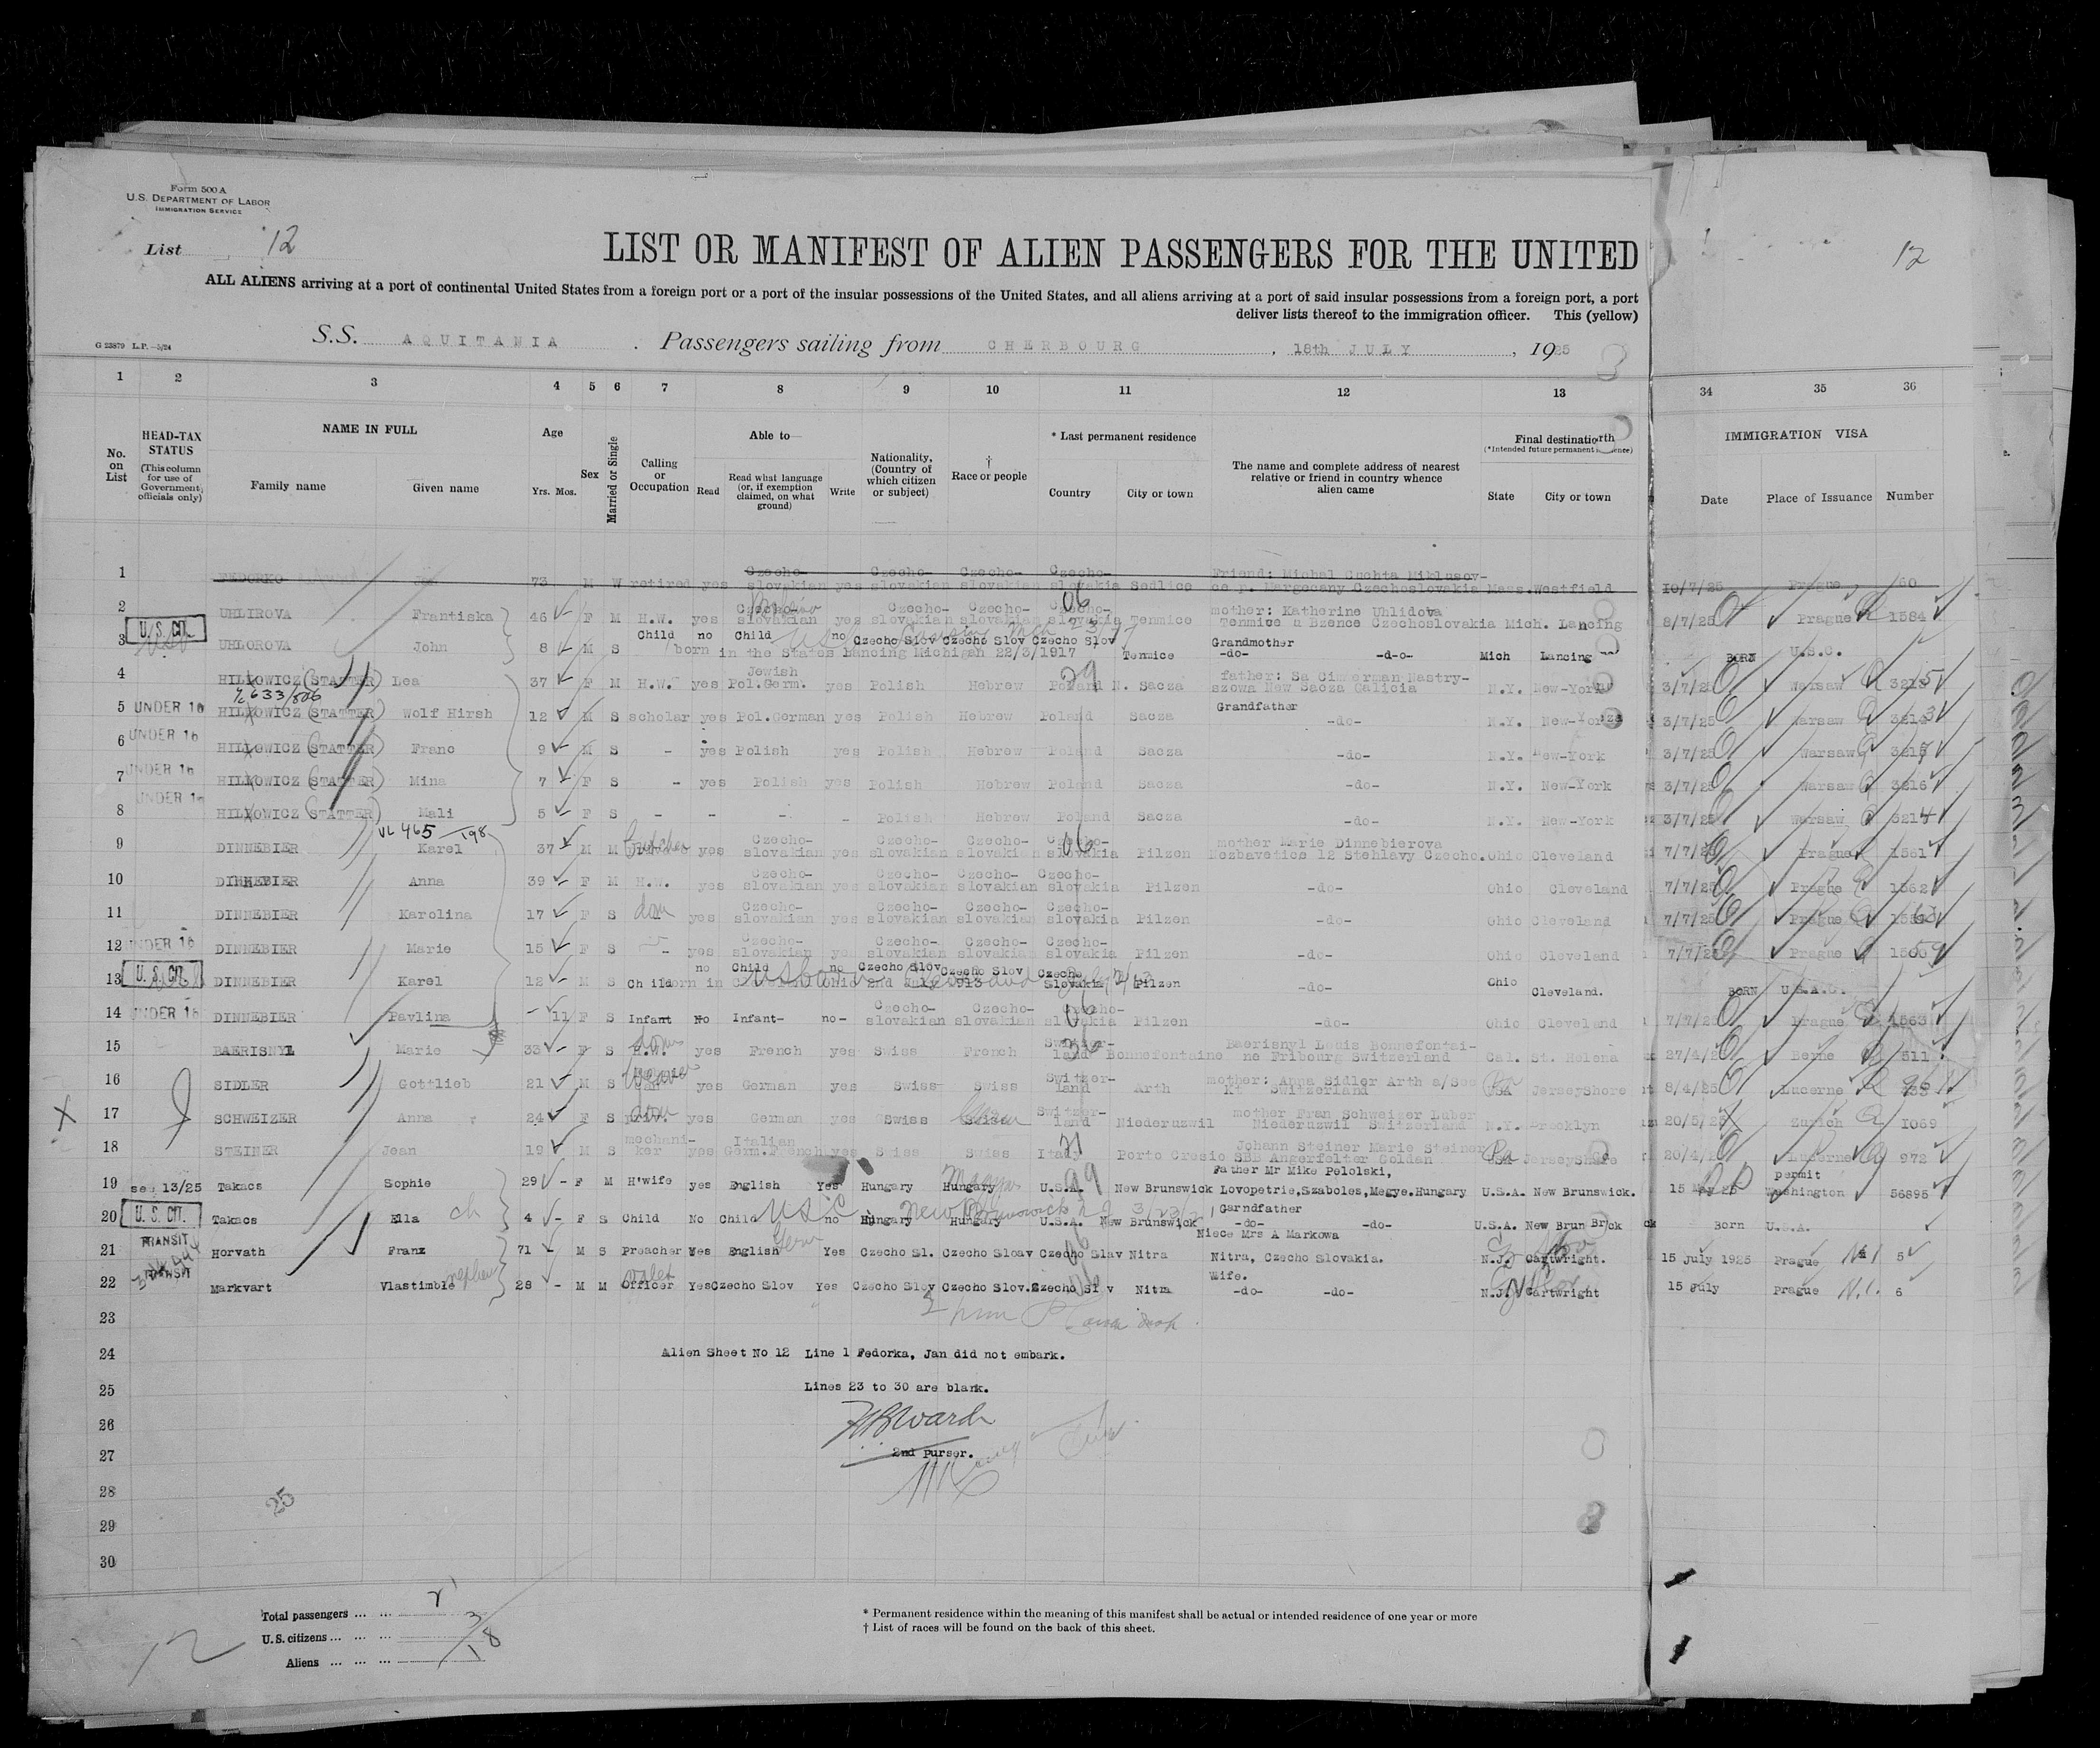 Form 500 A
U.S. DEPARTMENT OF LABOR
IMMIGRATION SERVICE
List 12
12
LIST OR MANIFEST OF ALIEN PASSENGERS FOR THE UNITED
ALL ALIENS arriving at a port of continental United States from a foreign port or a port of the insular possessions of the United States, and all aliens arriving at a port of said insular possessions from a foreign port, a port
deliver lists thereof to the immigration officer. This (yellow)
G 23879 L.P.—5/24
S.S. AQUITANIA . Passengers sailing from CHERBOURG , 18th JULY , 1925
1 2 3 4 5 6 7 8 9 10 11 12 13 34 35 36
No. on List
HEAD-TAX STATUS (This column for use of Government officials only)
NAME IN FULL
Family name Given name
Age
Yrs. Mos.
Sex
Married or Single
Calling or Occupation
Able to
Read
Read what language (or, if exemption claimed, on what ground)
Write
Nationality, (Country of which citizen or subject)
† Race or people
* Last permanent residence
Country City or town
The name and complete address of nearest relative or friend in country whence alien came
Final destination
(*Intended future permanent
State City or town
IMMIGRATION VISA
Date Place of Issuance Number
1 FEDORKO 73 M W retired yes Czecho-slovakian yes Czecho-slovakian Czecho-slovakian Czecho-slovakia Sedlice Friend: Michal Cuchta Miklusov-ce p. Margecany Czechoslovakia Mass. Westfield 10/7/25 Prague 60
2 UHLIROVA Frantiska 46 F M H.W. yes Czecho-slovakian yes Czecho-slovakian Czecho-slovakian Czecho-slovakia Temnice mother: Katherine Uhlidova Temnice u Bzence Czechoslovakia Mich. Lancing 8/7/25 Prague 1584
3 U.S. CIT. UHLOROVA John 8 M S Child no Child no Czecho Slov Czecho Slov Czecho Slov Temnice Grandmother -do- -d-o- Mich Lancing BORN U.S.C.
born in the States Lancing Michigan 22/3/1917
4 HILLOWICZ (STATTER) Lea 37 F M H.W. yes Jewish Pol.Germ. yes Polish Hebrew Poland N. Sacza father: Sa Cimmerman Rastry-szowa New Sacza Galicia N.Y. New-York 3/7/25 Warsaw
633/506
5 UNDER 16 HILLOWICZ (STATTER) Wolf Hirsh 12 M S scholar yes Pol.German yes Polish Hebrew Poland Sacza Grandfather -do- N.Y. New-York 3/7/25 Warsaw
6 UNDER 16 HILLOWICZ (STATTER) Franc 9 M S - yes Polish yes Polish Hebrew Poland Sacza -do- N.Y. New-York 3/7/25 Warsaw
7 UNDER 16 HILLOWICZ (STATTER) Mina 7 F S - yes Polish yes Polish Hebrew Poland Sacza -do- N.Y. New-York 3/7/25 Warsaw 3216
8 UNDER 16 HILLOWICZ (STATTER) Mali 5 F S - - - - Polish Hebrew Poland Sacza -do- N.Y. New-York 3/7/25 Warsaw 3214
VL 465/198
9 DINNEBIER Karel 37 M M butcher yes Czecho-slovakian yes Czecho-slovakian Czecho-slovakian Czecho-slovakia Pilzen mother Marie Dinnebierova Nezbavetice 12 Stehlavy Czecho. Ohio Cleveland 7/7/25 Prague 1561
10 DINNEBIER Anna 39 F M H.W. yes Czecho-slovakian yes Czecho-slovakian Czecho-slovakian Czecho-slovakia Pilzen -do- Ohio Cleveland 7/7/25 Prague 1562
11 DINNEBIER Karolina 17 F S dom yes Czecho-slovakian yes Czecho-slovakian Czecho-slovakian Czecho-slovakia Pilzen -do- Ohio Cleveland 7/7/25 Prague
12 UNDER 16 DINNEBIER Marie 15 F S - yes Czecho-slovakian yes Czecho-slovakian Czecho-slovakian Czecho-slovakia Pilzen -do- Ohio Cleveland 7/7/25 Prague
13 U.S. CIT. DINNEBIER Karel 12 M S Child no Child no Czecho Slov Czecho Slov Czecho Slovakia Pilzen -do- Ohio Cleveland. BORN U.S.A.
born in Cleveland Ohio 2nd July 1913
14 UNDER 16 DINNEBIER Pavlina 11 F S Infant No Infant- no- Czecho-slovakian Czecho-slovakian Czecho-slovakia Pilzen -do- Ohio Cleveland 7/7/25 Prague 1563
15 BAERISNYL Marie 33 F S H.W. yes French yes Swiss French Switzer-land Bonnefontaine Baerisnyl Louis Bonnefontai-ne Fribourg Switzerland Cal. St. Helena 27/4/25 Berne 511
16 SIDLER Gottlieb 21 M S Weaver yes German yes Swiss Swiss Switzer-land Arth mother: Anna Sidler Arth Switzerland Pa JerseyShore 8/4/25 Lucerne
17 SCHWEIZER Anna 24 F S dom yes German yes Swiss Swiss Switzer-land Niederuzwil mother Fran Schweizer Luber Niederuzwil Switzerland N.Y. Brooklyn 20/5/25 Zurich 1069
18 STEINER Jean 19 M S mechani-ker yes Italian Germ.French yes Swiss Swiss Italy Porto Cresio Johann Steiner Marie Steiner SBB Angerfelter Goldau Pa JerseyShore 20/4/25 Lucerne 972
19 13/25 Takacs Sophie 29 - F M H'wife yes English Yes Hungary Hungary Magyar U.S.A. New Brunswick Father Mr Mike Pelolski, Lovopetrie, Szaboles, Megye. Hungary U.S.A. New Brunswick. 15 May 25 permit Washington 56895
20 U.S. CIT. Takacs Ella ch 4 - F S Child No Child USC no Hungary Hungary U.S.A. New Brunswick Garndfather -do- -do- U.S.A. New Brun Brick Born U.S.A.
21 TRANSIT Horvath Franz 71 - M S Preacher Yes English Germ Yes Czecho Sl. Czecho Sloav Czecho Slav Nitra Niece Mrs A Markowa Nitra, Czecho Slovakia. N.J. Cartwright. 15 July 1925 Prague 5
22 TRANSIT Markvart Vlastimole nephew 28 - M M Officer valet Yes Czecho Slov Yes Czecho Slov Czecho Slov. Czecho Sl v Nitra Wife. -do- -do- N.J. Cartwright 15 July Prague N.I. 6
23
24 Alien Sheet No 12 Line 1 Fedorka, Jan did not embark.
25 Lines 23 to 30 are blank.
26 Ward
27 2nd Purser.
28
29
30
25
Total passengers ... ...
U.S. citizens ... ... ... 3
Aliens ... ... ... 18
12
* Permanent residence within the meaning of this manifest shall be actual or intended residence of one year or more
† List of races will be found on the back of this sheet.